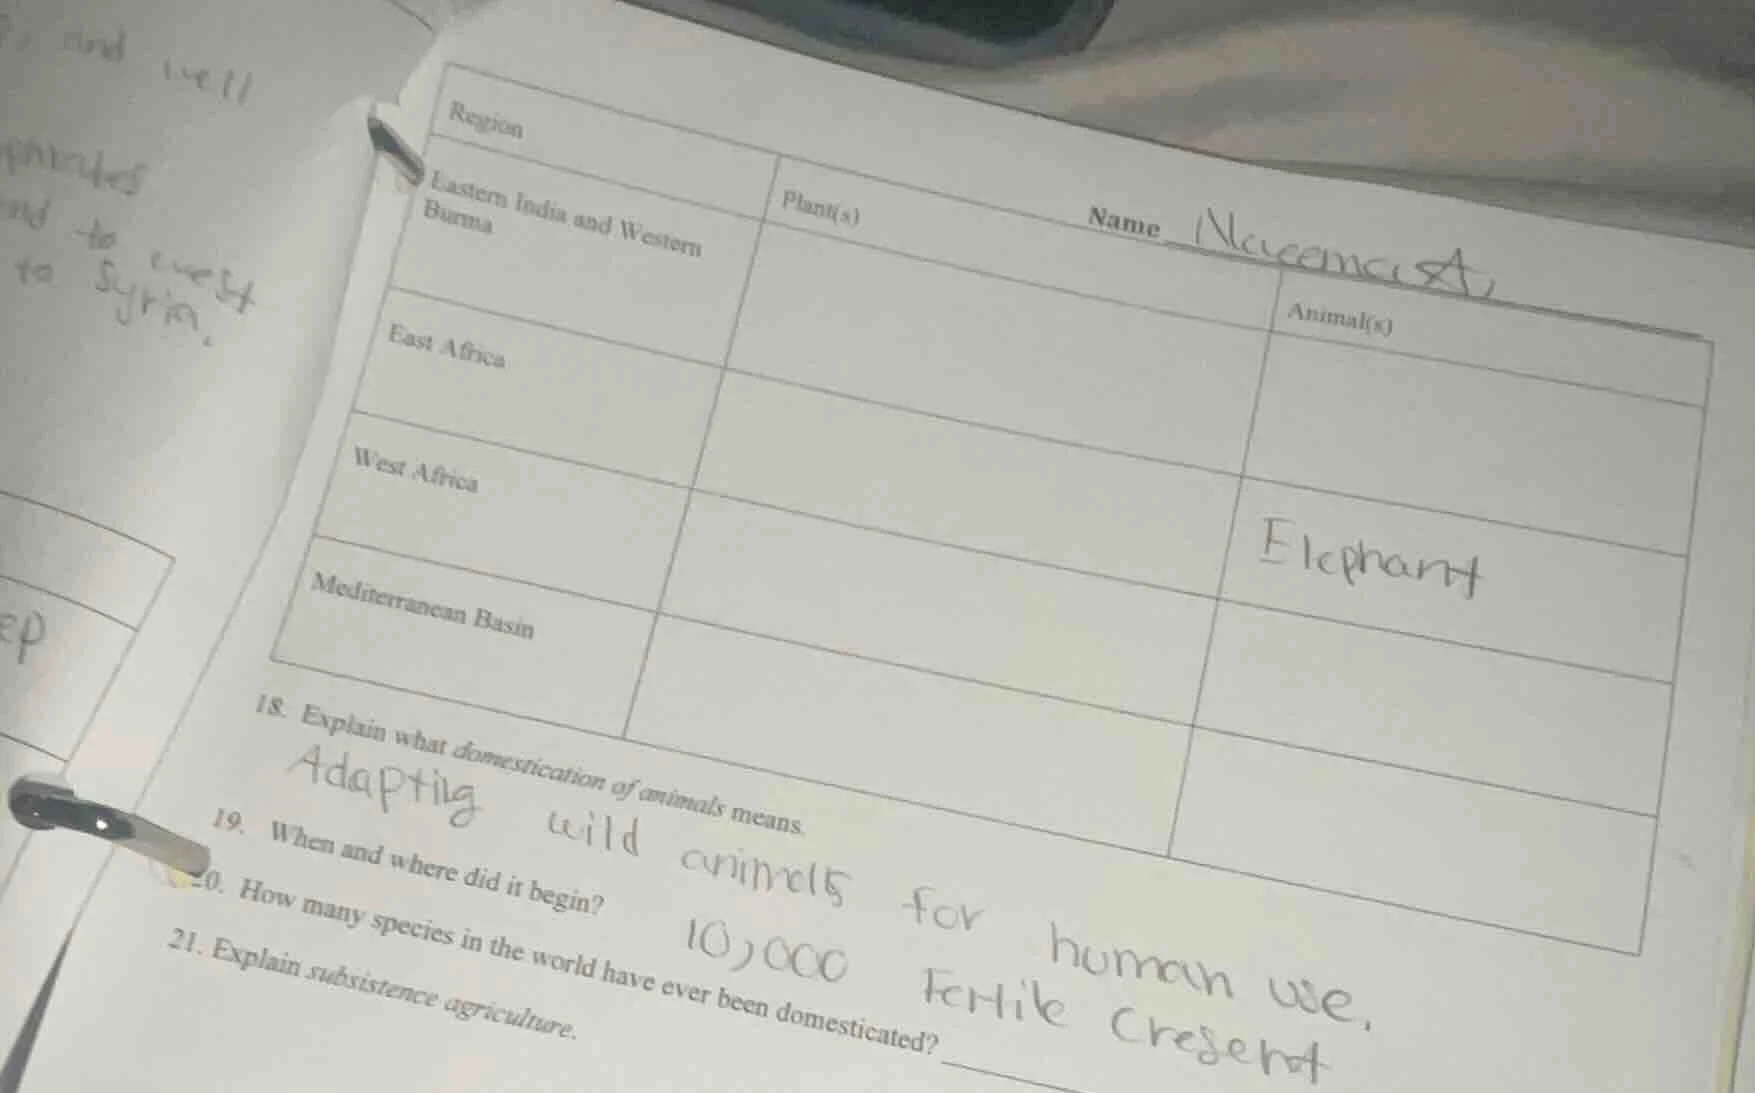 and well
and to west
to Syria.
ep
Name Naeema A.
Region
Plant(s)
Animal(s)
Eastern India and Western
Burma
East Africa
Elephant
West Africa
Mediterranean Basin
18. Explain what domestication of animals means.
Adapting wild animals for human use.
19. When and where did it begin? 10,000 Fertile Cresent
20. How many species in the world have ever been domesticated?
21. Explain subsistence agriculture.